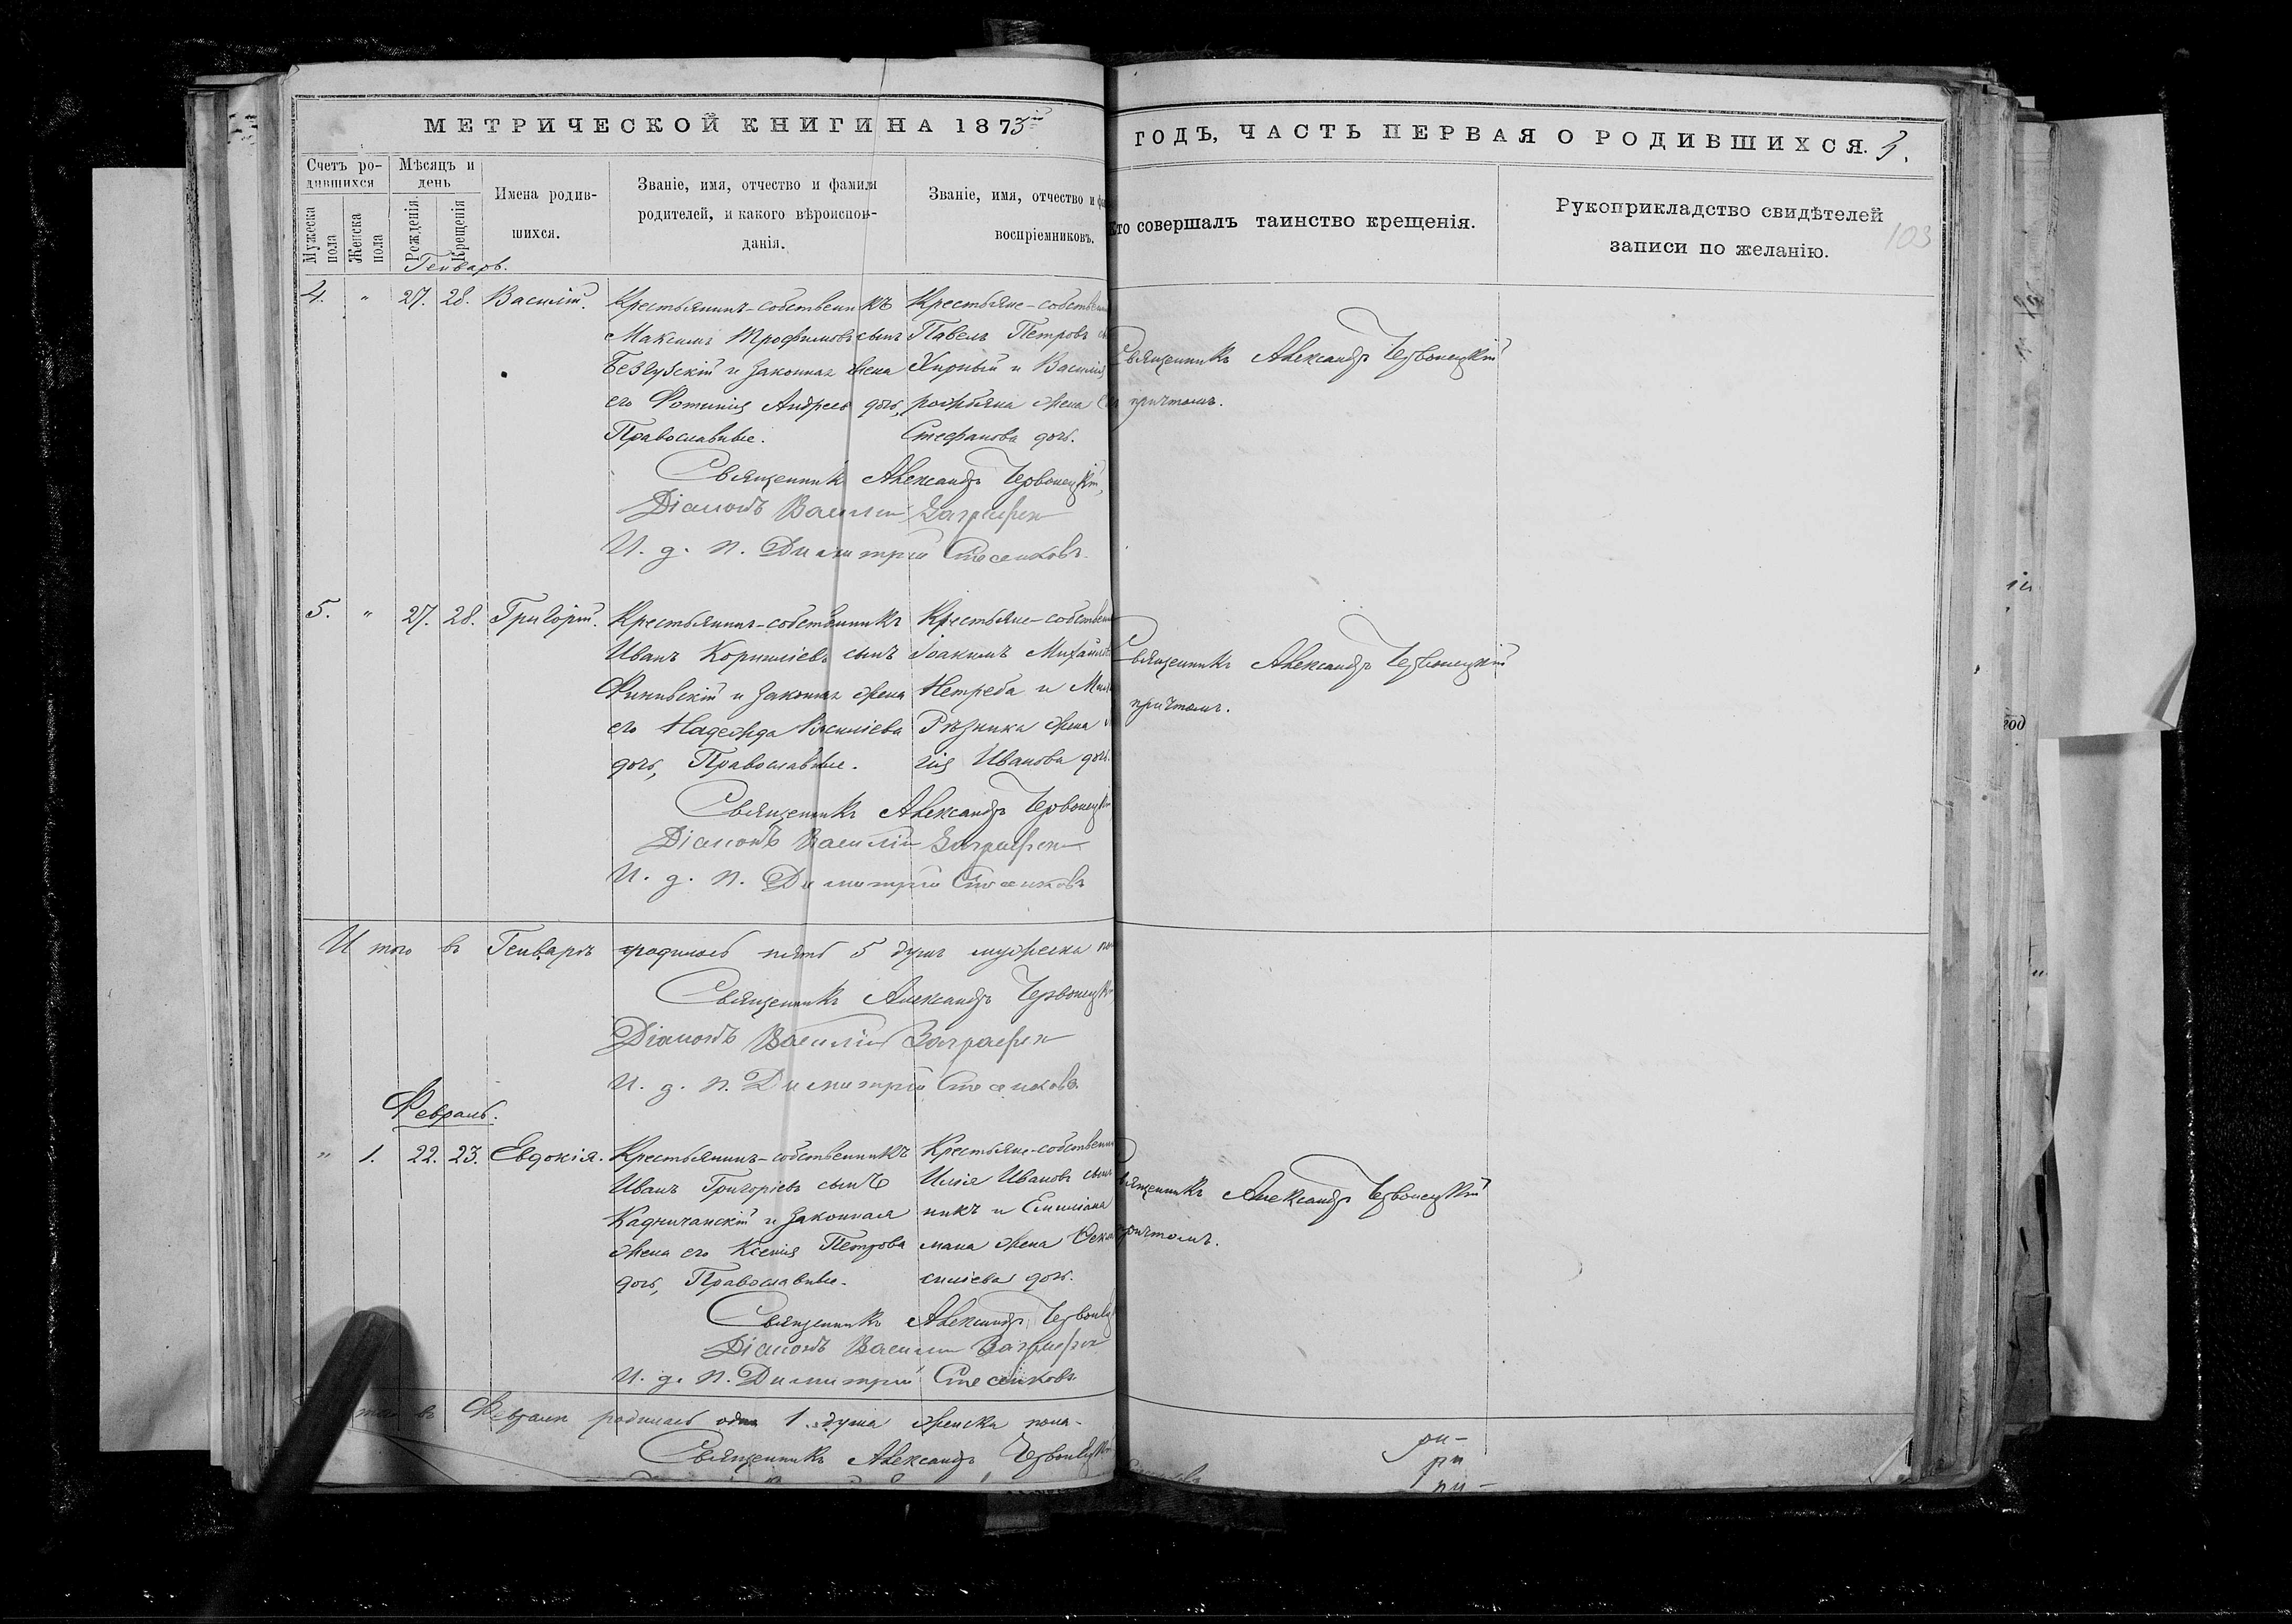 МЕТРИЧЕСКОЙ КНИГИ НА 1873й
ГОДЪ, ЧАСТЬ ПЕРВАЯ О РОДИВШИХСЯ. 3.
103
Счетъ ро-
дившихся
Мужеска пола
Женска пола
Мѣсяцъ и
день
Рожденія.
Крещенія
Имена родив-
шихся.
Званіе, имя, отчество и фамилія
родителей, и какого вѣроиспов-
данія.
Званіе, имя, отчество и
воспріемниковъ.
Кто совершалъ таинство крещенія.
Рукоприкладство свидѣтелей
записи по желанію.
Генварь.
4. " 27. 28. Василій.
Крестьянинъ-собственникъ
Максимъ Трофимовъ сынъ
Безубскій и законная жена
его Фотинія Андреева дочь,
Православные.
Крестьяне-собствен
Павелъ Петровъ
Жирный и Василія
жена
Стефанова дочь.
Священникъ Александръ Червонецкій
причтомъ.
Священникъ Александръ Червонецкій,
Діаконъ Василій
И. д. п. Димитрій Стесенковъ
5. " 27. 28. Григорій.
Крестьянинъ-собственникъ
Иванъ Корниліевъ сынъ
и законная жена
его Надежда Василіева
дочь, Православные.
Крестьяне-собствен
Іоакимъ Михайлов
Нетреба и
Рѣзника жена
Иванова дочь.
Священникъ Александръ Червонецкій
причтомъ.
Священникъ Александръ Червонецкій
Діаконъ Василій
И. д. п. Димитрій Стесенковъ
И того въ Генварѣ родилось пять 5 душъ мужеска по
Священникъ Александръ Червонецкій
Діаконъ Василій
И. д. п. Димитрій Стесенковъ
Февраль.
" 1. 22. 23. Евдокія.
Крестьянинъ-собственникъ
Иванъ Григоріевъ сынъ
и законная
жена его Ксенія Петрова
дочь, Православные.
Крестьяне-собственни
Илія Ивановъ сынъ
никъ и Емиліана
мана жена
силіева дочь.
Священникъ Александръ Червонецкій
причтомъ.
Священникъ Александръ Червонец
Діаконъ Василій
И. д. п. Димитрій Стесенковъ
того въ Февралѣ родилась одна 1 душа женска пола.
Священникъ Александръ Червонецкій